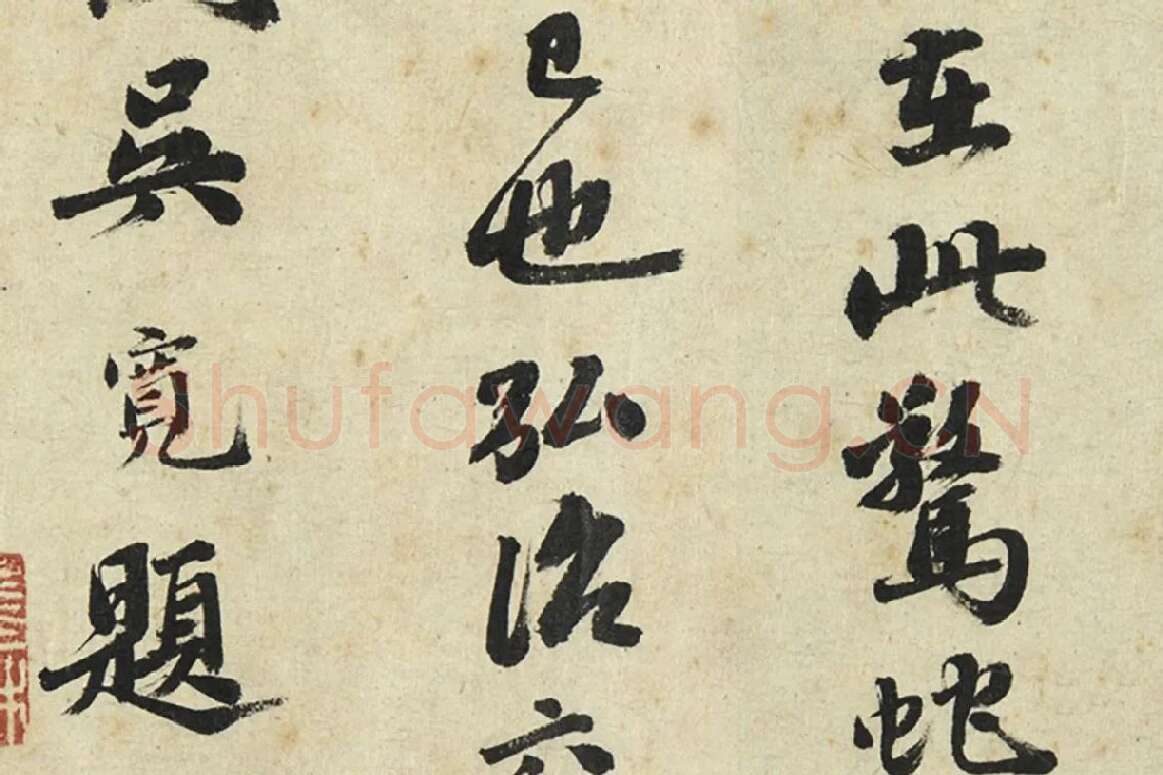 在此驚蛇
已也弘治六
吳寬題
shufawang.CN